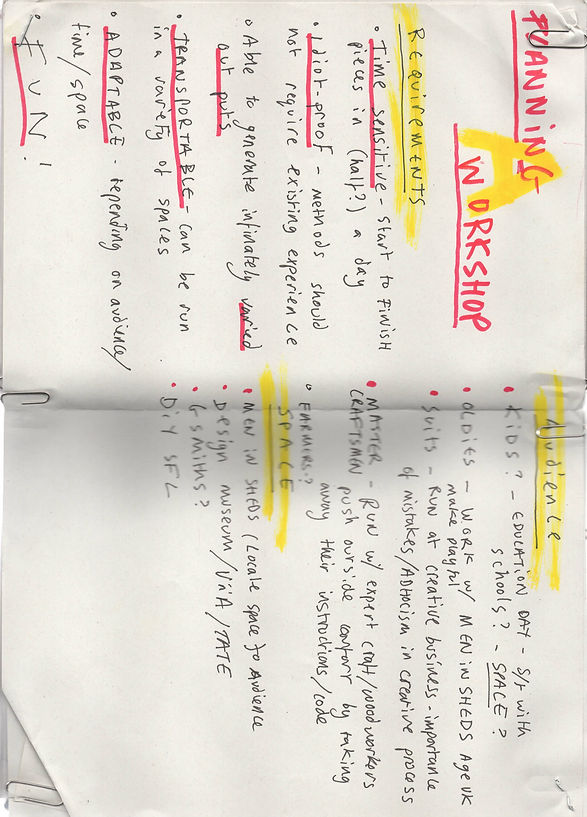 PLANNING
A
WORKSHOP
REQUIREMENTS
• Time sensitive - start to finish
pieces in (half?) a day
• Idiot-proof - methods should
not require existing experience
• Able to generate infinately varied
outputs
• TRANSPORTABLE - can be run
in a variety of spaces
• ADAPTABLE - depending on audience/
time/space
• FUN!
Audience
• KIDS? - EDUCATION DAY - S/t with
schools? - SPACE?
• OLDIES - WORK w/ MEN IN SHEDS Age UK
make playful
• Suits - Run at creative business - importance
of mistakes/ADHOCISM in creative process
• MASTER - RUN w/ expert craft/woodworkers
CRAFTSMEN push outside comfort by taking
away their instructions/code
• FARMERS?
SPACE
• MEN IN SHEDS (Locale space to Audience
• Design museum/V&A/TATE
• Gsmiths?
• DIY SFL